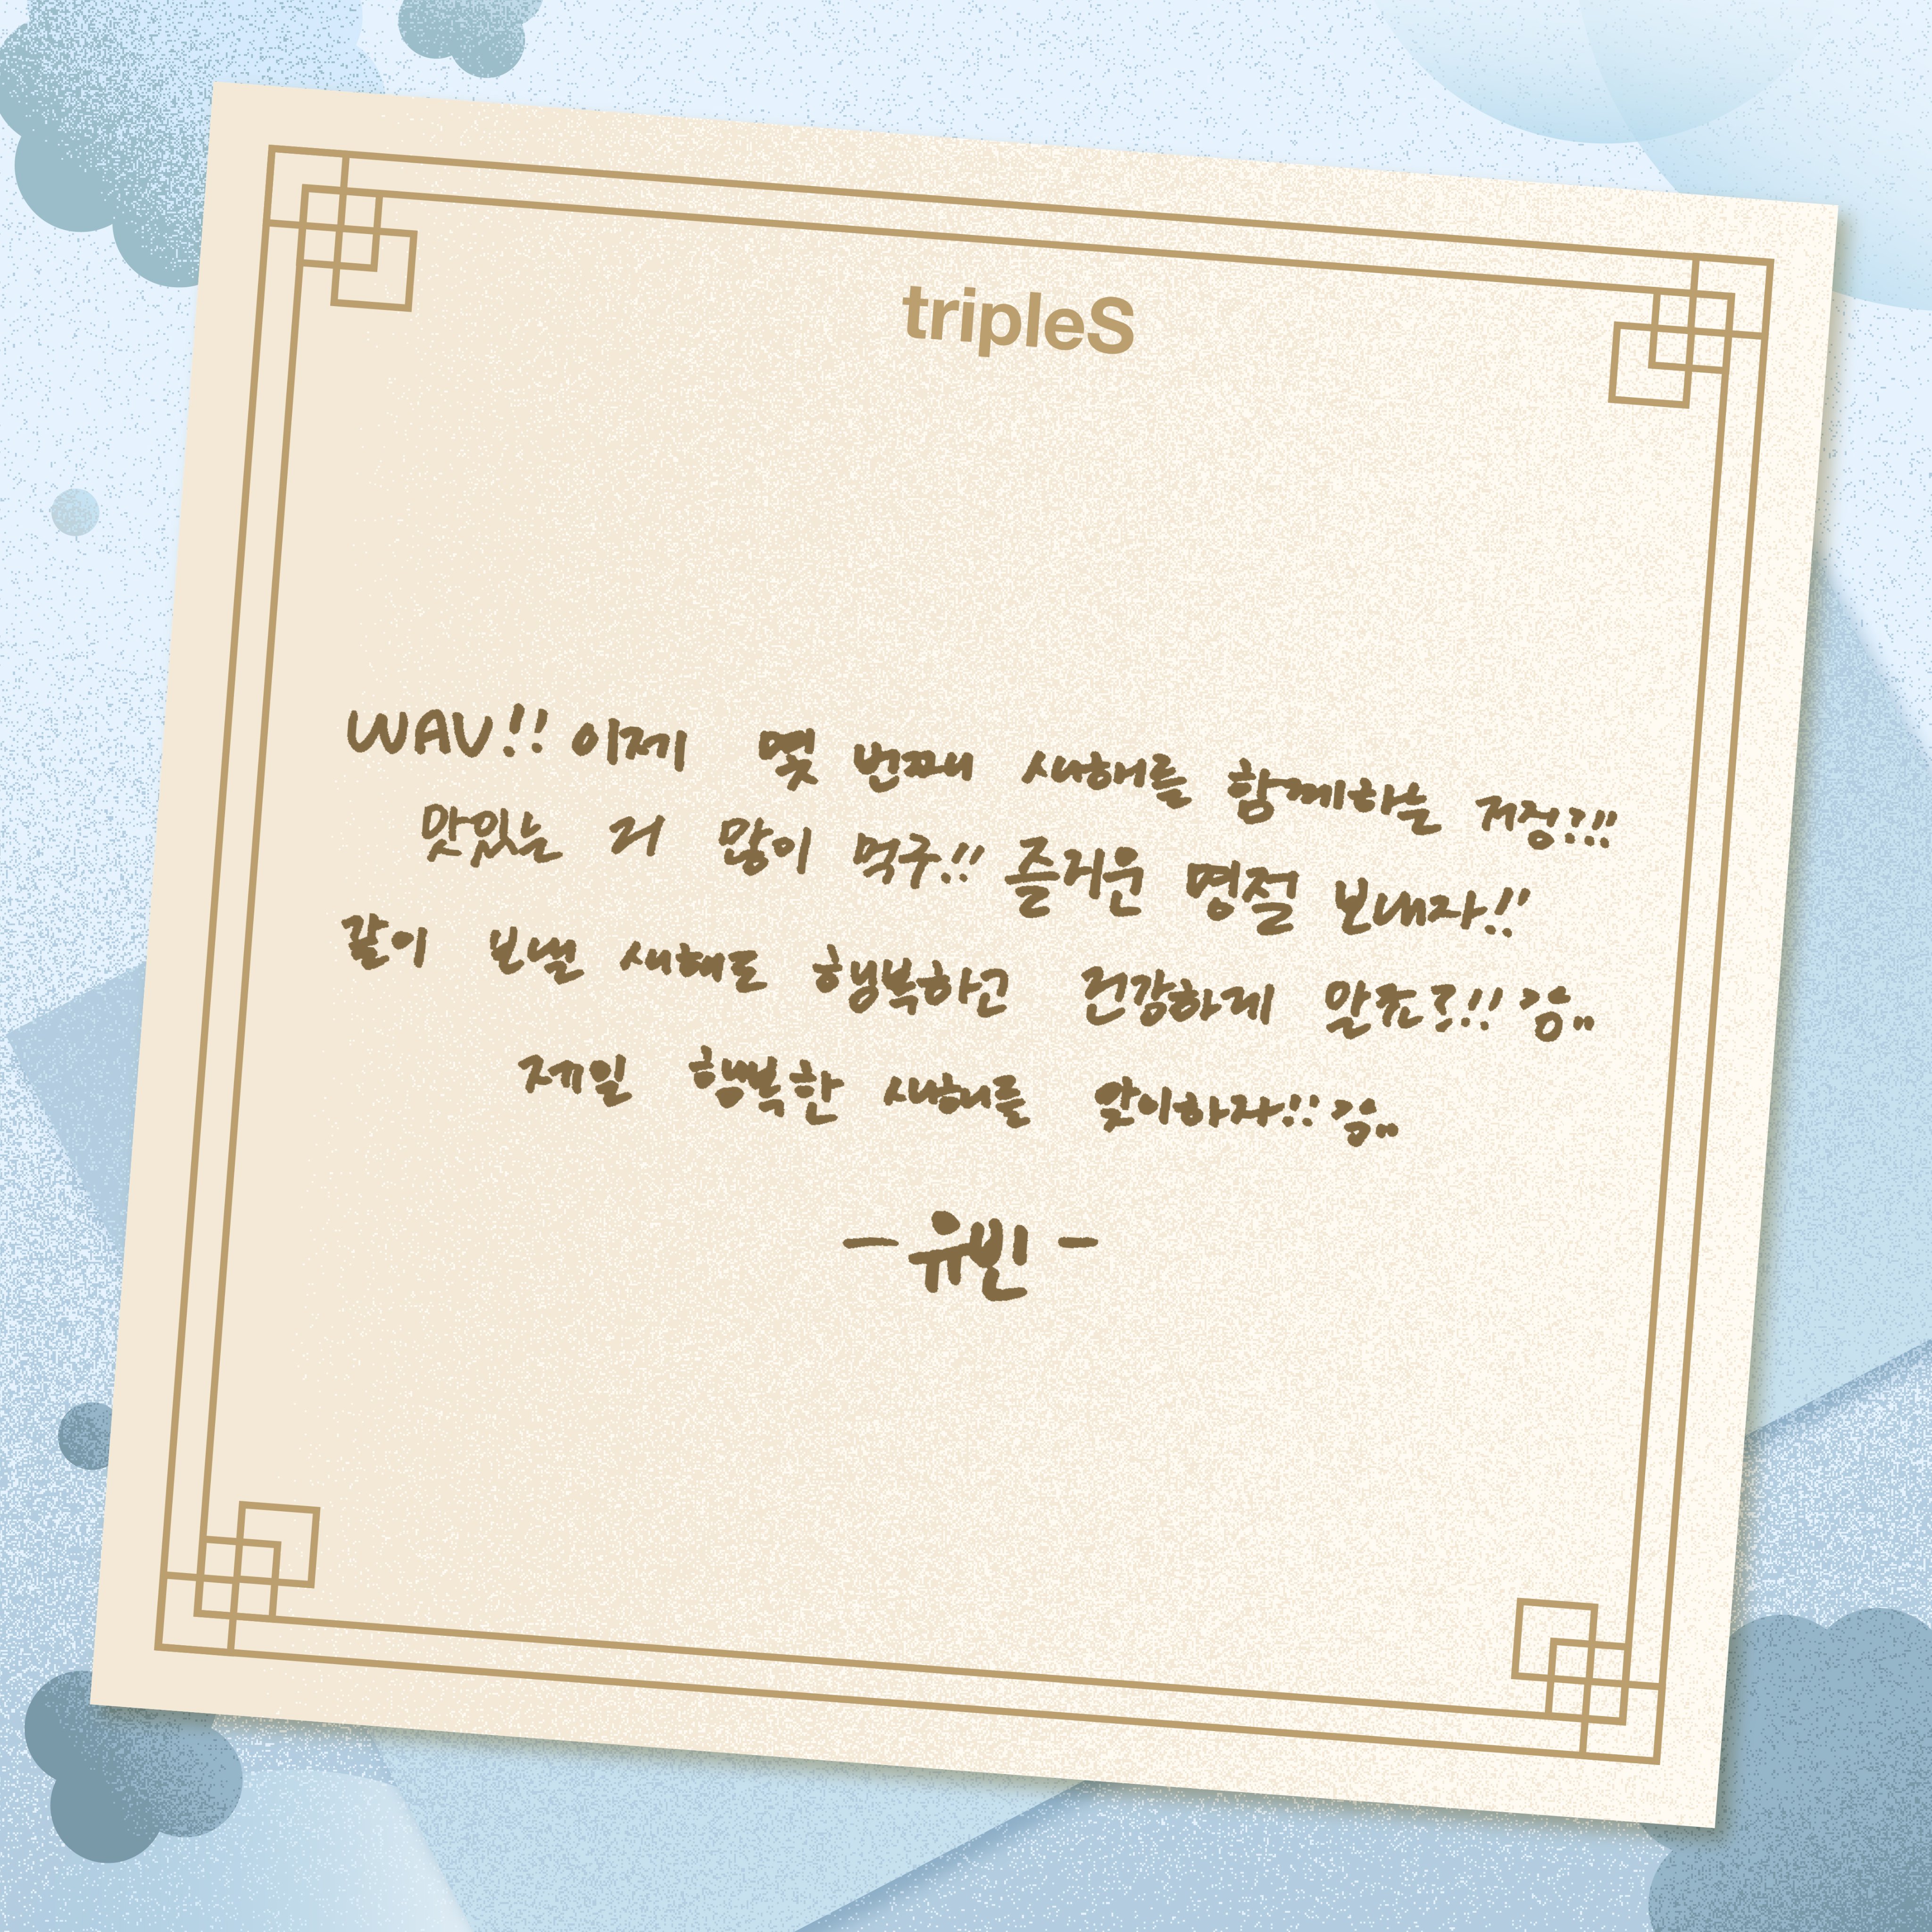 tripleS
WAV!! 이제 몇 번째 새해를 함께하는 거징?!!
맛있는 거 많이 먹구!! 즐거운 명절 보내자!!
같이 보낼 새해도 행복하고 건강하게 알죠?!!
제일 행복한 새해를 맞이하자!!
- 유빈 -